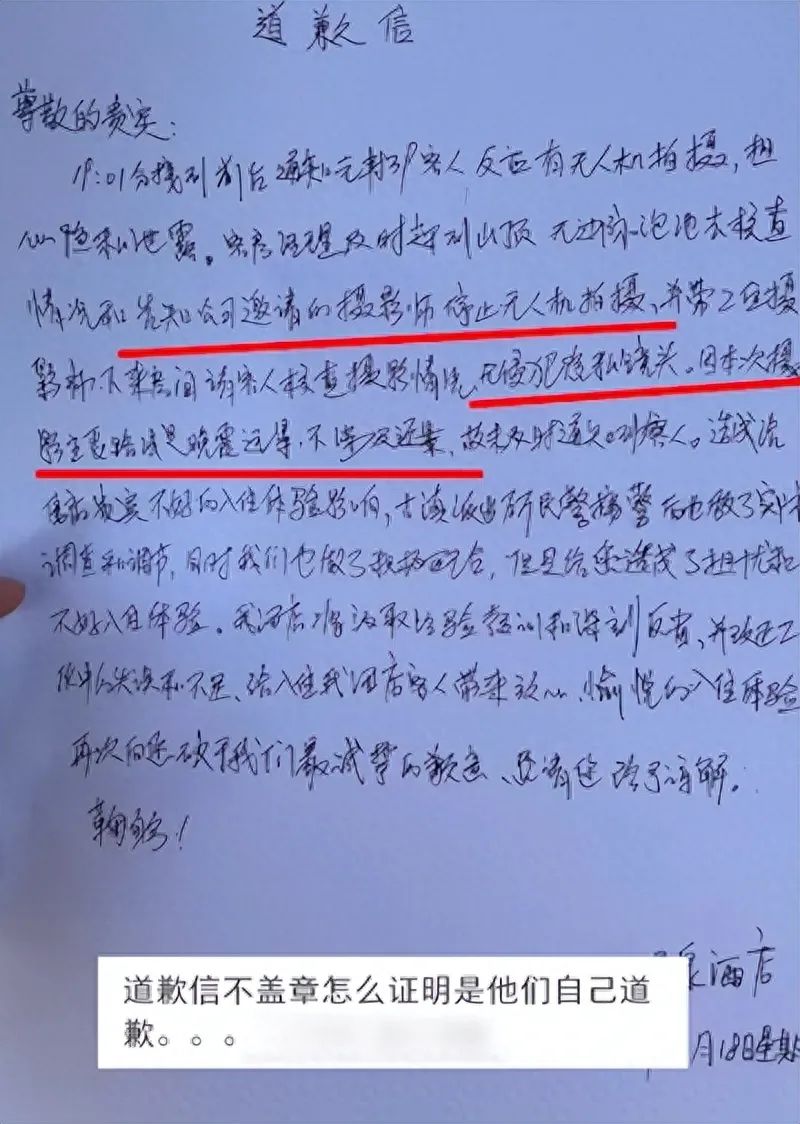 道歉信
尊敬的贵宾：
19:01分接到前台通知元村39客人反应有无人机拍摄，担
心隐私泄露。客房经理及时赶到山顶无边际泡池去核查
情况和告知公司邀请的摄影师停止无人机拍摄、并带工在摄
影师下来房间请客人核查摄影情况，无侵犯隐私镜头。因本次摄
影主要拍摄是晚霞远景、不涉及近景、故未及时通知到客人。造成给
贵宾不好的入住体验影响，派出所民警接警后也做了实情
调查和调节，同时我们也做了积极配合，但是给您造成了担忧和
不好入住体验。我酒店将汲取经验教训和深刻反省、并改进工
作中的失误和不足、给入住我酒店客人带来放心、愉悦的入住体验
再次向您致于我们最诚挚的歉意、还请您给予谅解。
鞠躬！
泉酒店
月18日星期
道歉信不盖章怎么证明是他们自己道
歉。。。